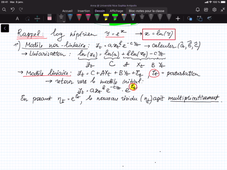 Rappel : log népérien y = e^x → x = ln(y)
1) Modèle non linéaire : y_t = a x_t^b e^{-c z_t} → calculer (â, b̂, ĉ)
→ Linéarisation : ln(y_t) = ln(a) + b ln(x_t) - c z_t
y_t C A X_t B Z_t
→ Modèle linéaire : y_t = C + A X_t + B Z_t + ε_t → perturbation
→ retour vers le modèle initial
y_t = a x_t^b e^{-c z_t} . e^{ε_t}
En posant η_t = e^{ε_t}, le nouveau résidu (η_t) agit multiplicativement.